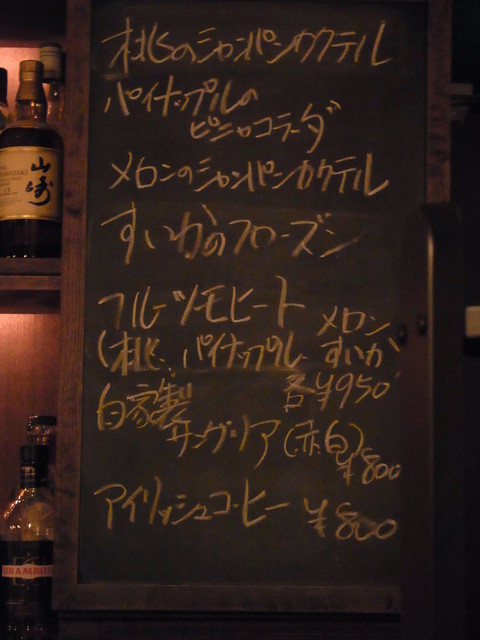 桃のシャンパンカクテル
パイナップルの
ピニャコラーダ
メロンのシャンパンカクテル
すいかのフローズン
フルーツモヒート
(桃、パイナップル メロン すいか)
各¥950
自家製
サングリア(赤白)
¥800
アイリッシュコーヒー ¥800
山崎
DRAMBUIE